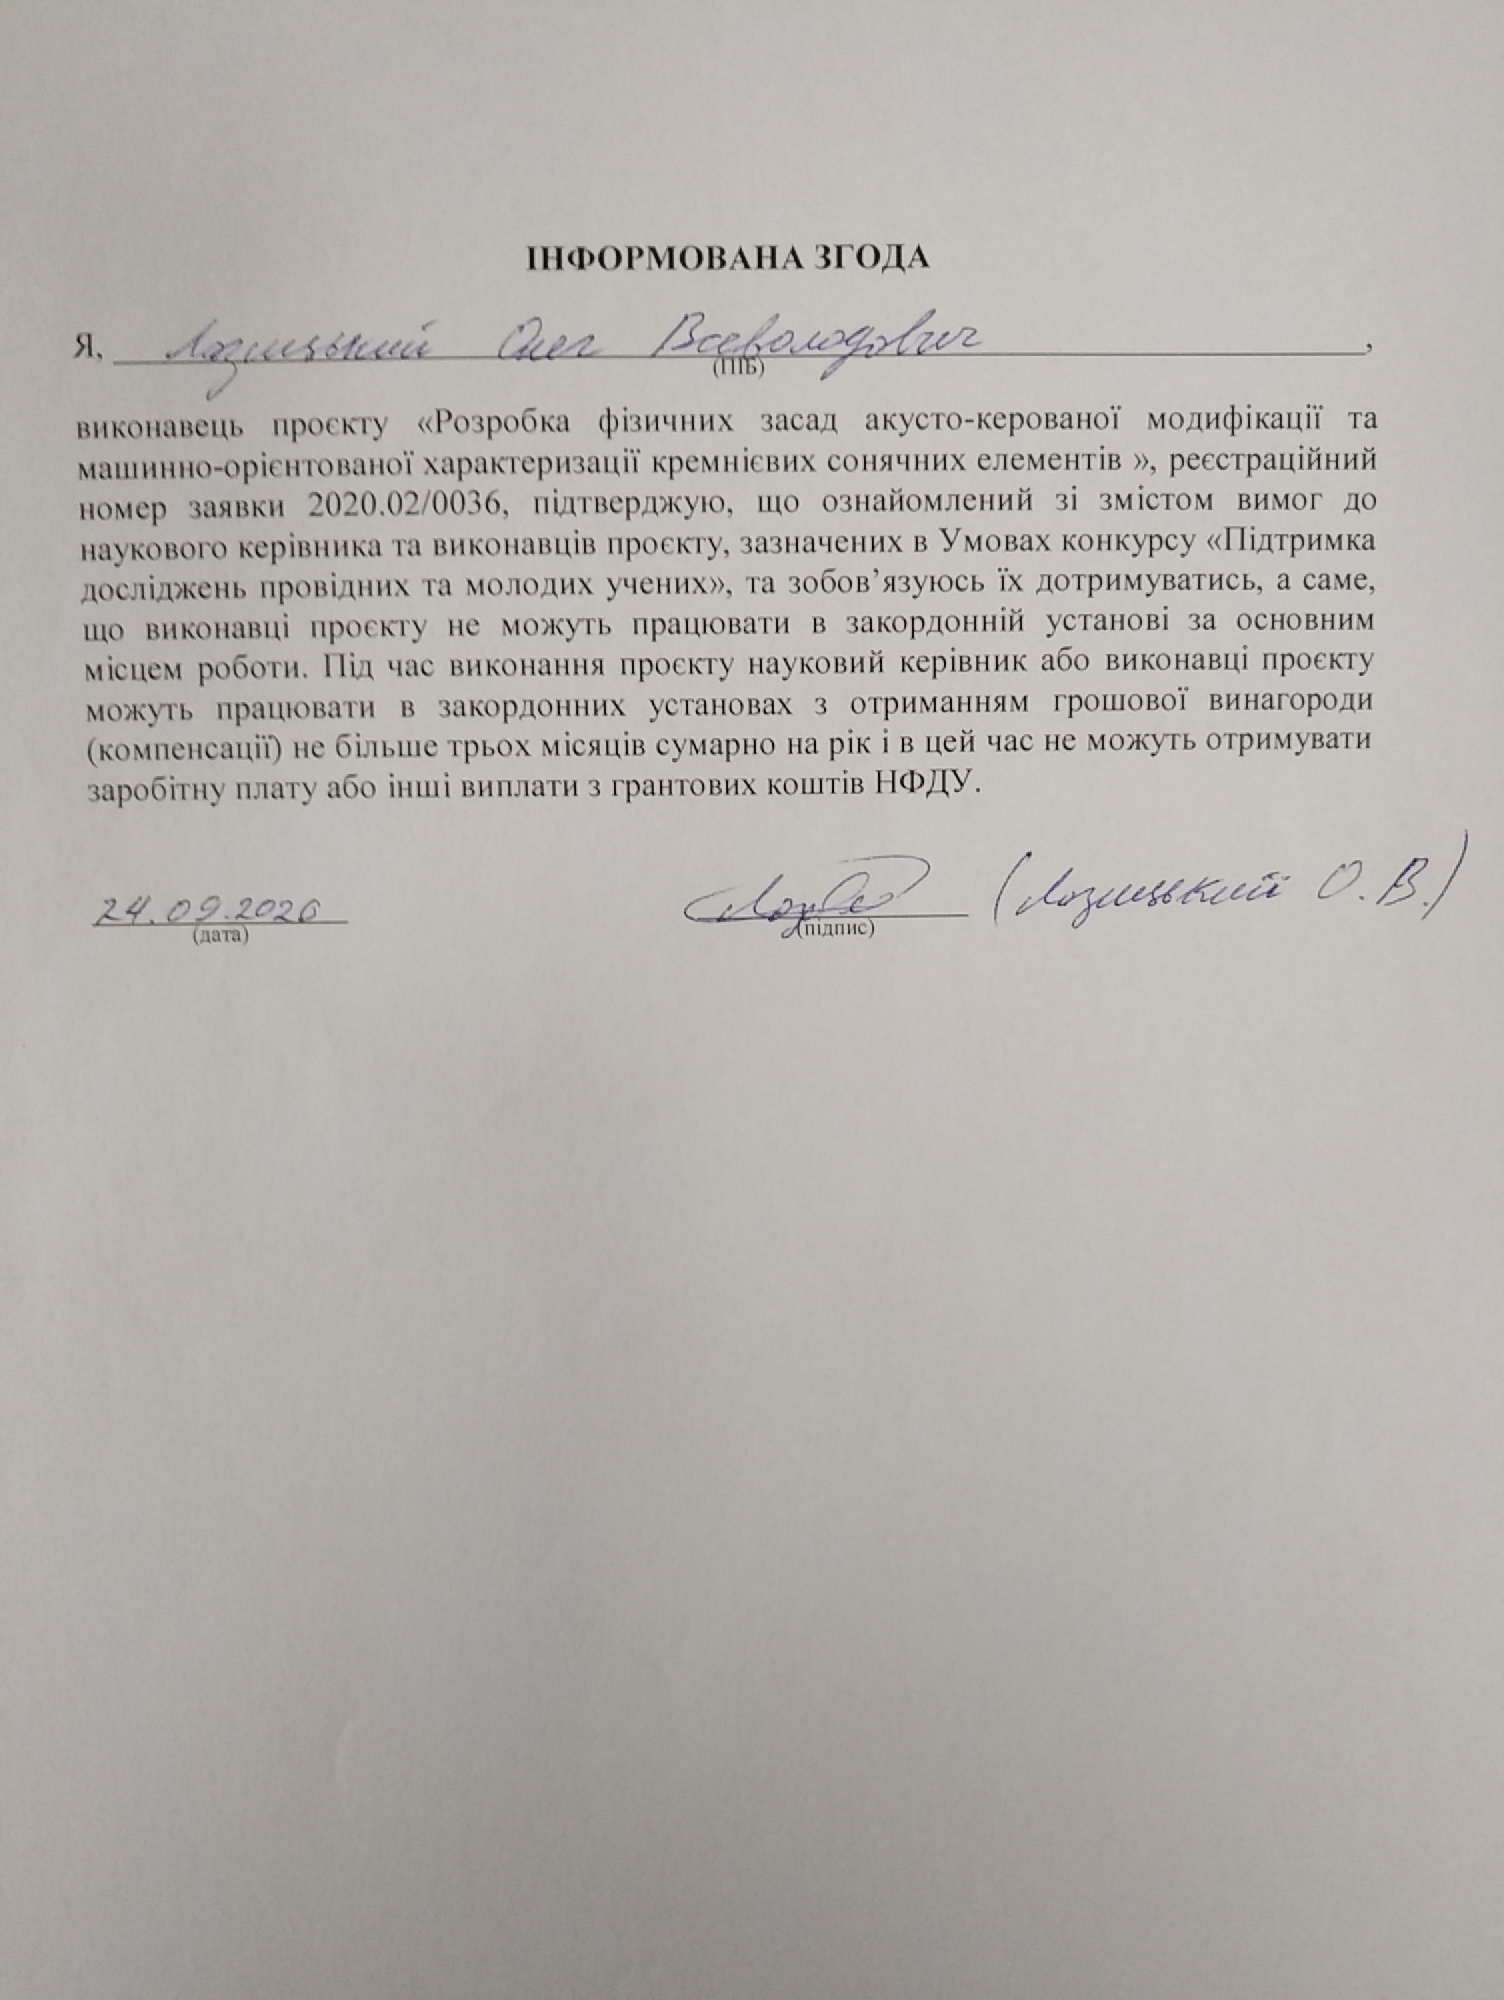 ІНФОРМОВАНА ЗГОДА
Я, Лозицький Олег Всеволодович,
(ПІБ)
виконавець проєкту «Розробка фізичних засад акусто-керованої модифікації та
машинно-орієнтованої характеризації кремнієвих сонячних елементів », реєстраційний
номер заявки 2020.02/0036, підтверджую, що ознайомлений зі змістом вимог до
наукового керівника та виконавців проєкту, зазначених в Умовах конкурсу «Підтримка
досліджень провідних та молодих учених», та зобов’язуюсь їх дотримуватись, а саме,
що виконавці проєкту не можуть працювати в закордонній установі за основним
місцем роботи. Під час виконання проєкту науковий керівник або виконавці проєкту
можуть працювати в закордонних установах з отриманням грошової винагороди
(компенсації) не більше трьох місяців сумарно на рік і в цей час не можуть отримувати
заробітну плату або інші виплати з грантових коштів НФДУ.
24.09.2020 (Лозицький О.В.)
(дата) (підпис)